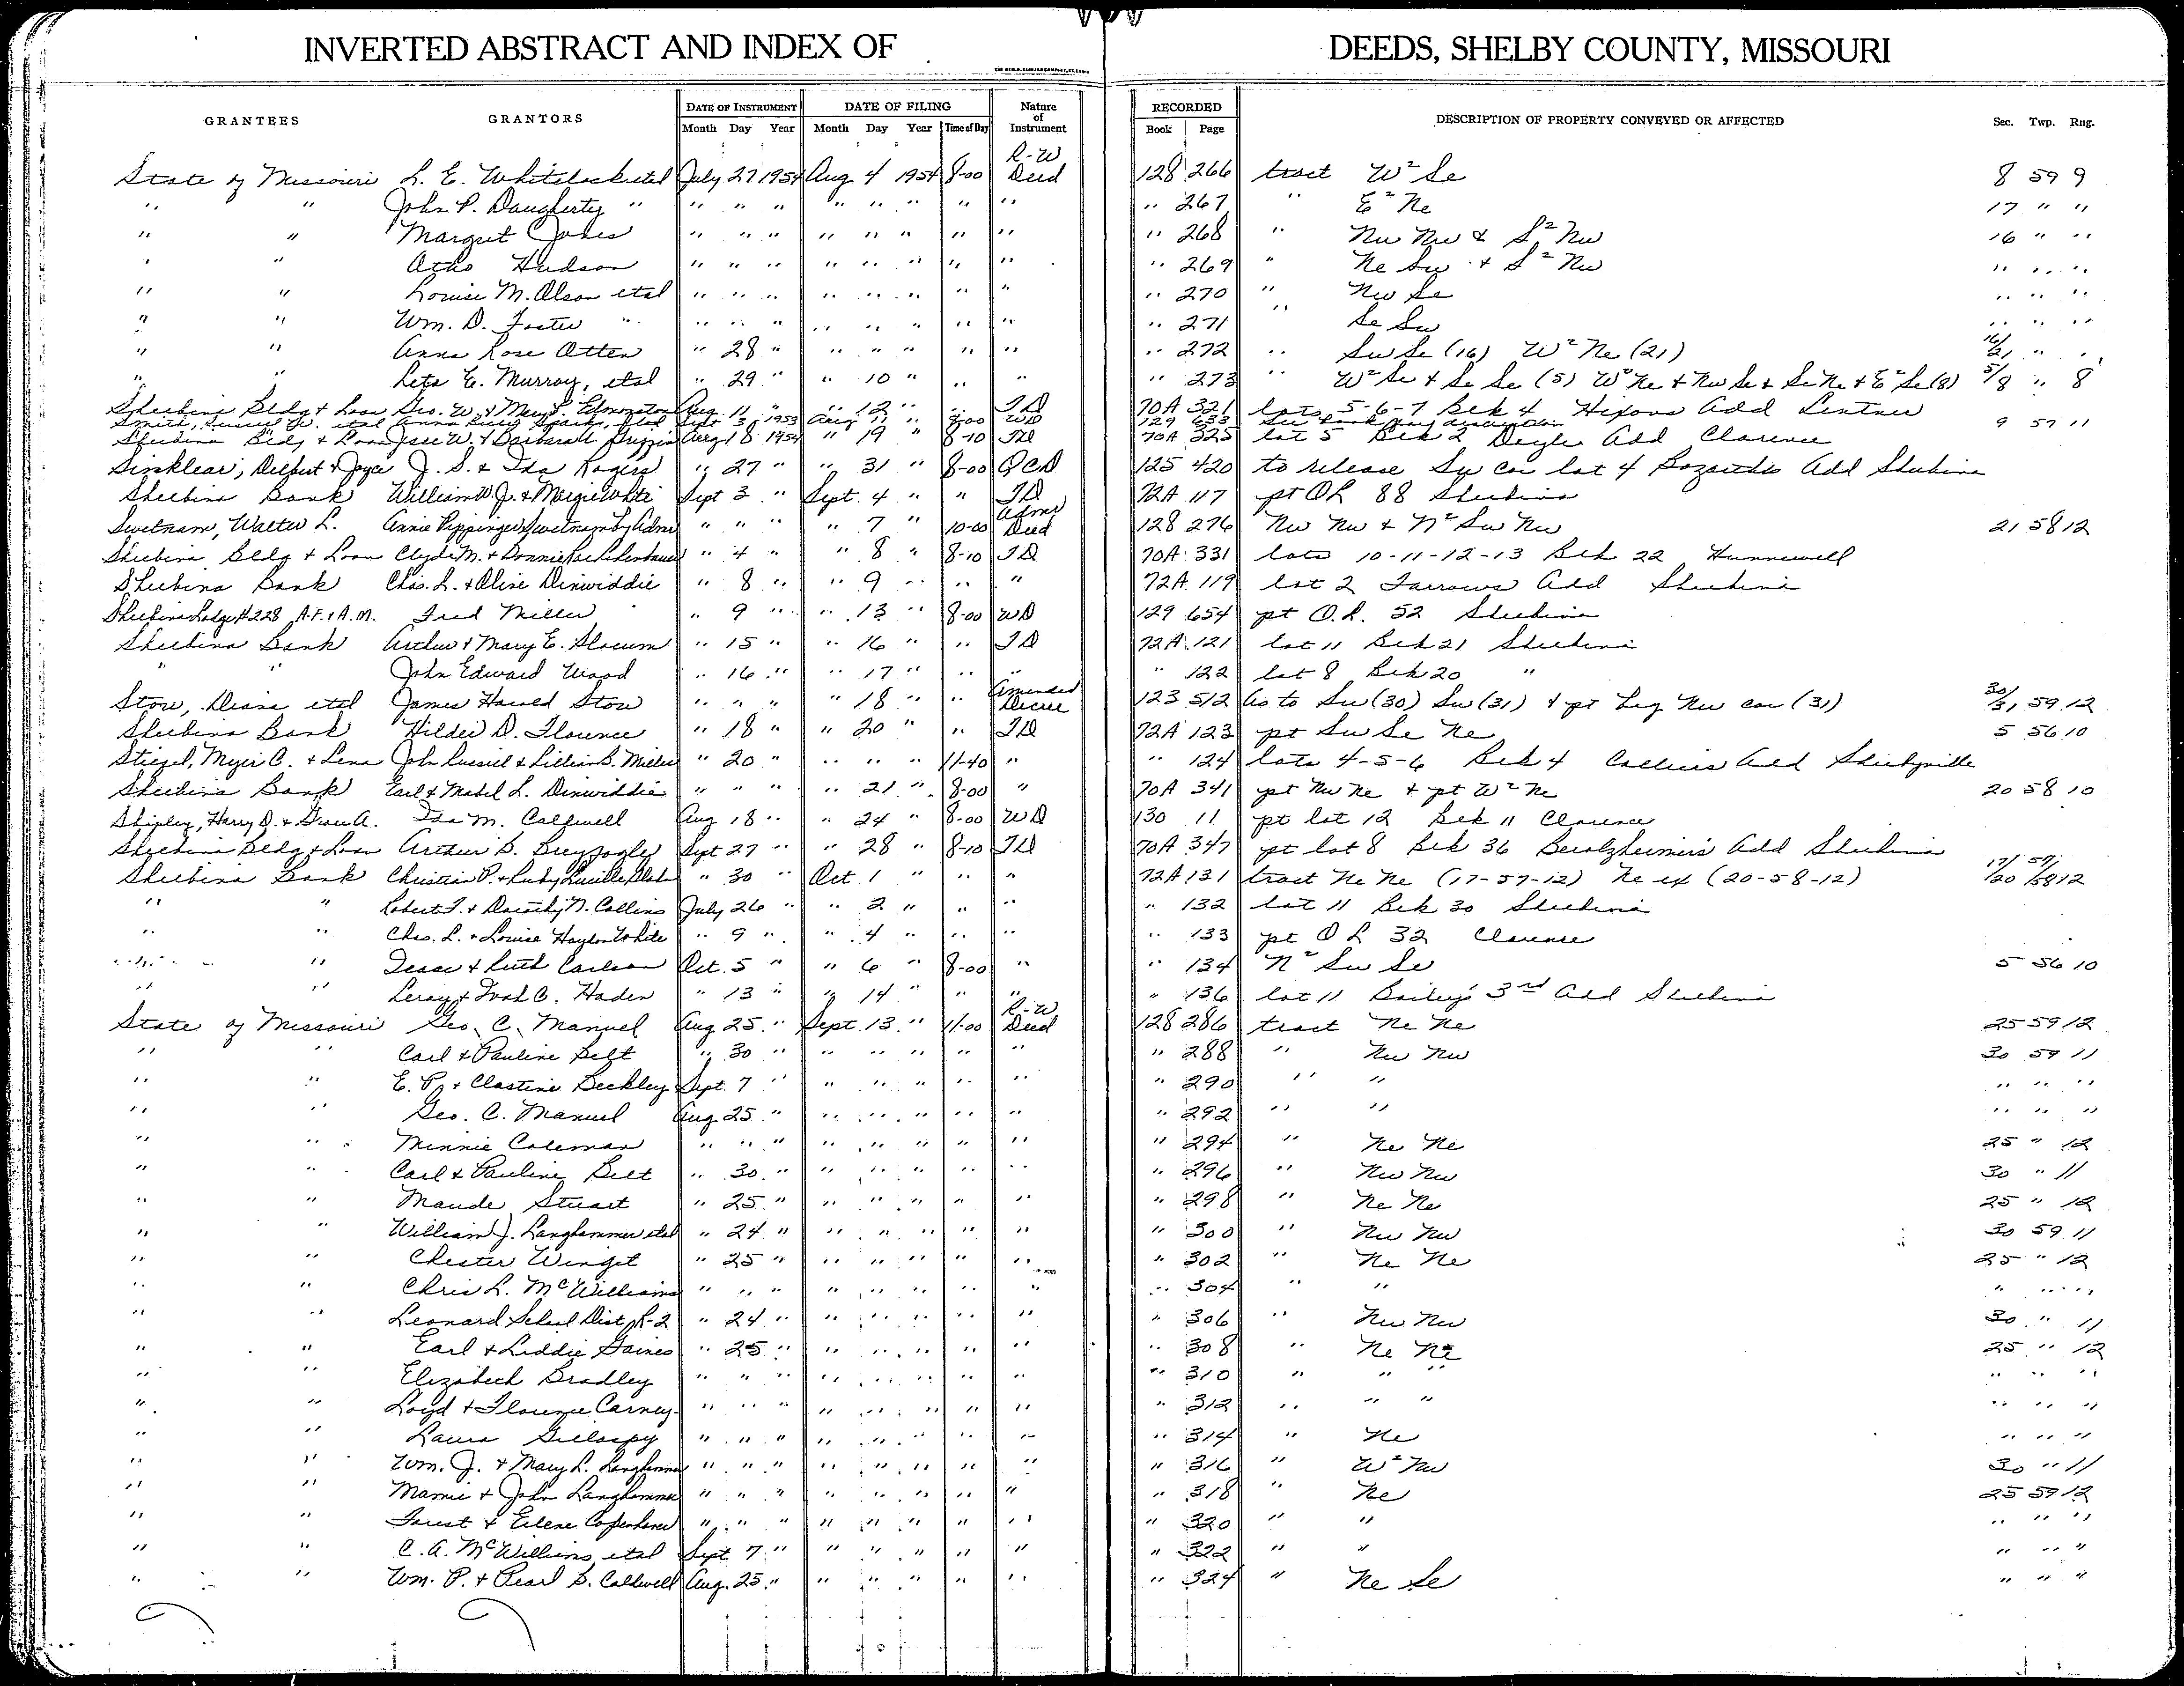 INVERTED ABSTRACT AND INDEX OF DEEDS, SHELBY COUNTY, MISSOURI
GRANTEES GRANTORS DATE OF INSTRUMENT DATE OF FILING Nature of Instrument RECORDED DESCRIPTION OF PROPERTY CONVEYED OR AFFECTED Sec. Twp. Rng.
Month Day Year Month Day Year Time of Day Book Page
State of Missouri L. E. Whitelock etal July 27 1954 Aug 4 1954 8-00 R-W Deed 128 266 tract W² Se 8 59 9
" " John P. Daugherty " " " " " " " " " " 267 " E² Ne 17 " "
" " Margret Jones " " " " " " " " " 268 " Nw Nw & S² Nw 16 " "
" " Otho Hudson " " " " " " " " " 269 " Ne Sw & S² Nw " " "
" " Louise M. Olson etal " " " " " " " " " 270 " Nw Se " " "
" " Wm. D. Foster " " " " " " " " " " 271 " Se Sw " " "
" " Anna Rose Otten " 28 " " " " " " " 272 " Sw Se (16) W² Ne (21) 16/21 " "
" " Leta E. Murray, etal " 29 " " 10 " " " " 273 " W² Se & Se Se (5) W² Ne & Nw Se & Se Ne & E² Se (8) 5/8 " 8
Shelbina Bldg & Loan Geo. W. & Mary L. Edmonston Aug. 11 " " 12 " " TD 70A 321 lots 5-6-7 Blk 4 Hixons Add Lentner
Smith, etal Anna Sparks, etal Sept 3 1953 Aug 8-00 WD 129 633 See 9 57 11
Shelbina Bldg & Loan Jace W. & Barbara A. Griffin Aug 18 1954 " 19 " 8-10 TD 70A 325 lot 5 Blk 2 Add Clarence
Sinklear, Delbert & Joyce J. S. & Ida Rogers " 27 " " 31 " 8-00 QCD 125 420 to release Sw cor lot 4 Add Shelbina
Shelbina Bank William W. J. & Margie White Sept 3 " Sept. 4 " " TD 72A 117 pt OL 88 Shelbina
Swetnam, Walter L. Annie Pippinger Swetnam by Admr " " " " 7 " 10-00 Admr Deed 128 276 Nw Nw & N² Sw Nw 21 58 12
Shelbina Bldg & Loan Clyde M. & Donnie " 4 " " 8 " 8-10 TD 70A 331 lots 10-11-12-13 Blk 22 Hunnewell
Shelbina Bank Chas. L. & Oline Dinwiddie " 8 " " 9 " " " 72A 119 lot 2 Farrows Add Shelbina
Shelbina Lodge #228 A.F. & A.M. Fred Miller " 9 " " 13 " 8-00 WD 129 654 pt O.L. 52 Shelbina
Shelbina Bank Arthur & Mary E. Slocum " 15 " " 16 " " TD 72A 121 lot 11 Blk 21 Shelbina
" " John Edward Wood " 16 " " 17 " " " " 122 lot 8 Blk 20 "
Stow, Diana etal James Harold Stow " " " " 18 " " Amended Decree 123 512 As to Sw (30) Sw (31) & pt Leg Nw cor (31) 30/31 59 12
Shelbina Bank Hilder D. Florence " 18 " " 20 " " TD 72A 123 pt Sw Se Ne 5 56 10
Stiegel, Myer C. & Lena John Russiel & Lillian B. Miller " 20 " " " " 11-40 " " 124 lots 4-5-6 Blk 4 Colliers Add Shelbyville
Shelbina Bank Earl & Mabel L. Dinwiddie " " " " 21 " 8-00 " 70A 341 pt Nw Ne & pt W² Ne 20 58 10
Shipley, Harry D. & Grace A. Ida M. Caldwell Aug 18 " " 24 " 8-00 WD 130 11 pt lot 12 Blk 11 Clarence
Shelbina Bldg & Loan Arthur B. Breyfogle Sept 27 " " 28 " 8-10 TD 70A 347 pt lot 8 Blk 36 Berolzheimer's Add Shelbina
Shelbina Bank Christian P. & Ruby Lucille " 30 " Oct. 1 " " " 72A 131 tract Ne Ne (17-57-12) Ne ex (20-58-12) 17/20 57/58 12
" " Robert T. & Dorothy N. Collins July 26 " " 2 " " " " 132 lot 11 Blk 30 Shelbina
" " Chas. L. & Louise Haydon White " 9 " " 4 " " " " 133 pt OL 32 Clarence
" " Isaac & Ruth Carlson Oct. 5 " " 6 " 8-00 " " 134 N² Sw Se 5 56 10
" " Leroy & Ivah C. Haden " 13 " " 14 " " " " 136 lot 11 Bailey's 3rd Add Shelbina
State of Missouri Geo. C. Manuel Aug 25 " Sept. 13 " 11-00 R-W Deed 128 286 tract Ne Ne 25 59 12
" " Carl & Pauline Belt " 30 " " " " " " " 288 " Nw Nw 30 59 11
" " E. P. & Clastine Beckley Sept. 7 " " " " " " " 290 " " " " "
" " Geo. C. Manuel Aug 25 " " " " " " " 292 " " " " "
" " Minnie Coleman " " " " " " " " " 294 " Ne Ne 25 " 12
" " Carl & Pauline Belt " 30 " " " " " " " 296 " Nw Nw 30 " 11
" " Maude Stuart " 25 " " " " " " " 298 " Ne Ne 25 " 12
" " William J. Langhammer etal " 24 " " " " " " " 300 " Nw Nw 30 59 11
" " Chester Winget " 25 " " " " " " " 302 " Ne Ne 25 " 12
" " Chris L. McWilliams " " " " " " " " " 304 " " " " "
" " Leonard School Dist R-2 " 24 " " " " " " " 306 " Nw Nw 30 " 11
" " Earl & Liddie Gaines " 25 " " " " " " " 308 " Ne Ne 25 " 12
" " Elizabeth Bradley " " " " " " " " " 310 " " " " " "
" " Loyd & Florence Carney " " " " " " " " " 312 " " " " " "
" " Laura Gillaspy " " " " " " " " " 314 " Ne " " "
" " Wm. J. & Mary L. Langhammer " " " " " " " " " 316 " W² Nw 30 " 11
" " Mamie & John Langhammer " " " " " " " " " 318 " Ne 25 59 12
" " Foust & Eilene Copenhaver " " " " " " " " " 320 " " " " "
" " C. A. McWilliams etal Sept. 7 " " " " " " " 322 " " " " "
" " Wm. P. & Pearl B. Caldwell Aug. 25 " " " " " " " 324 " Ne Se " " "